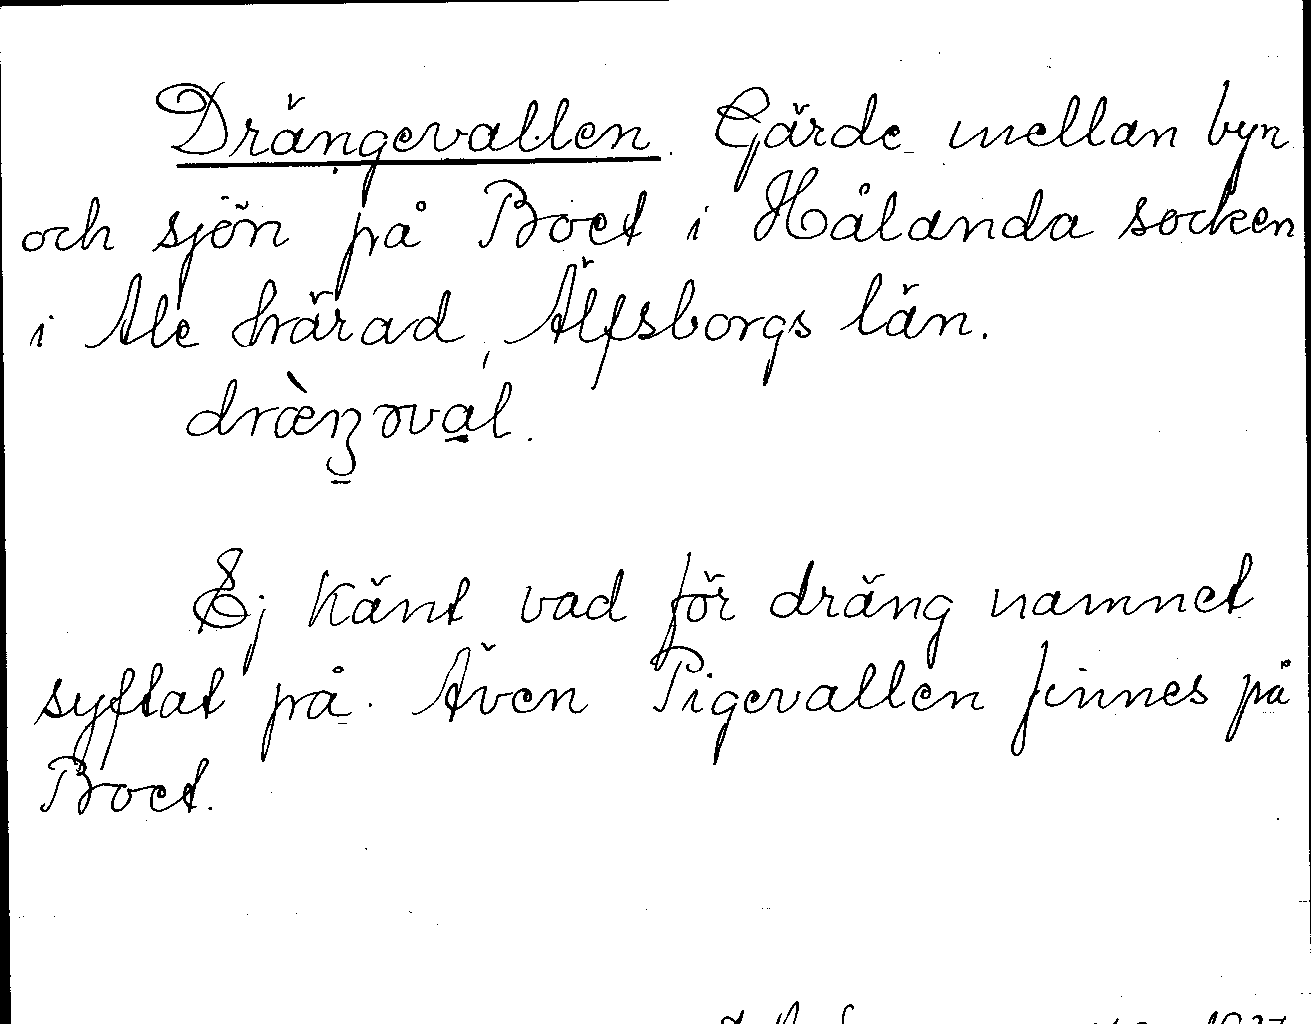 Drängevallen. Gärde mellan byn
och sjön på Boet i Hålanda socken
i Ale härad, Älfsborgs län.
Ej känt vad för dräng namnet
syftat på. Även Pigevallen finnes på
Boet.